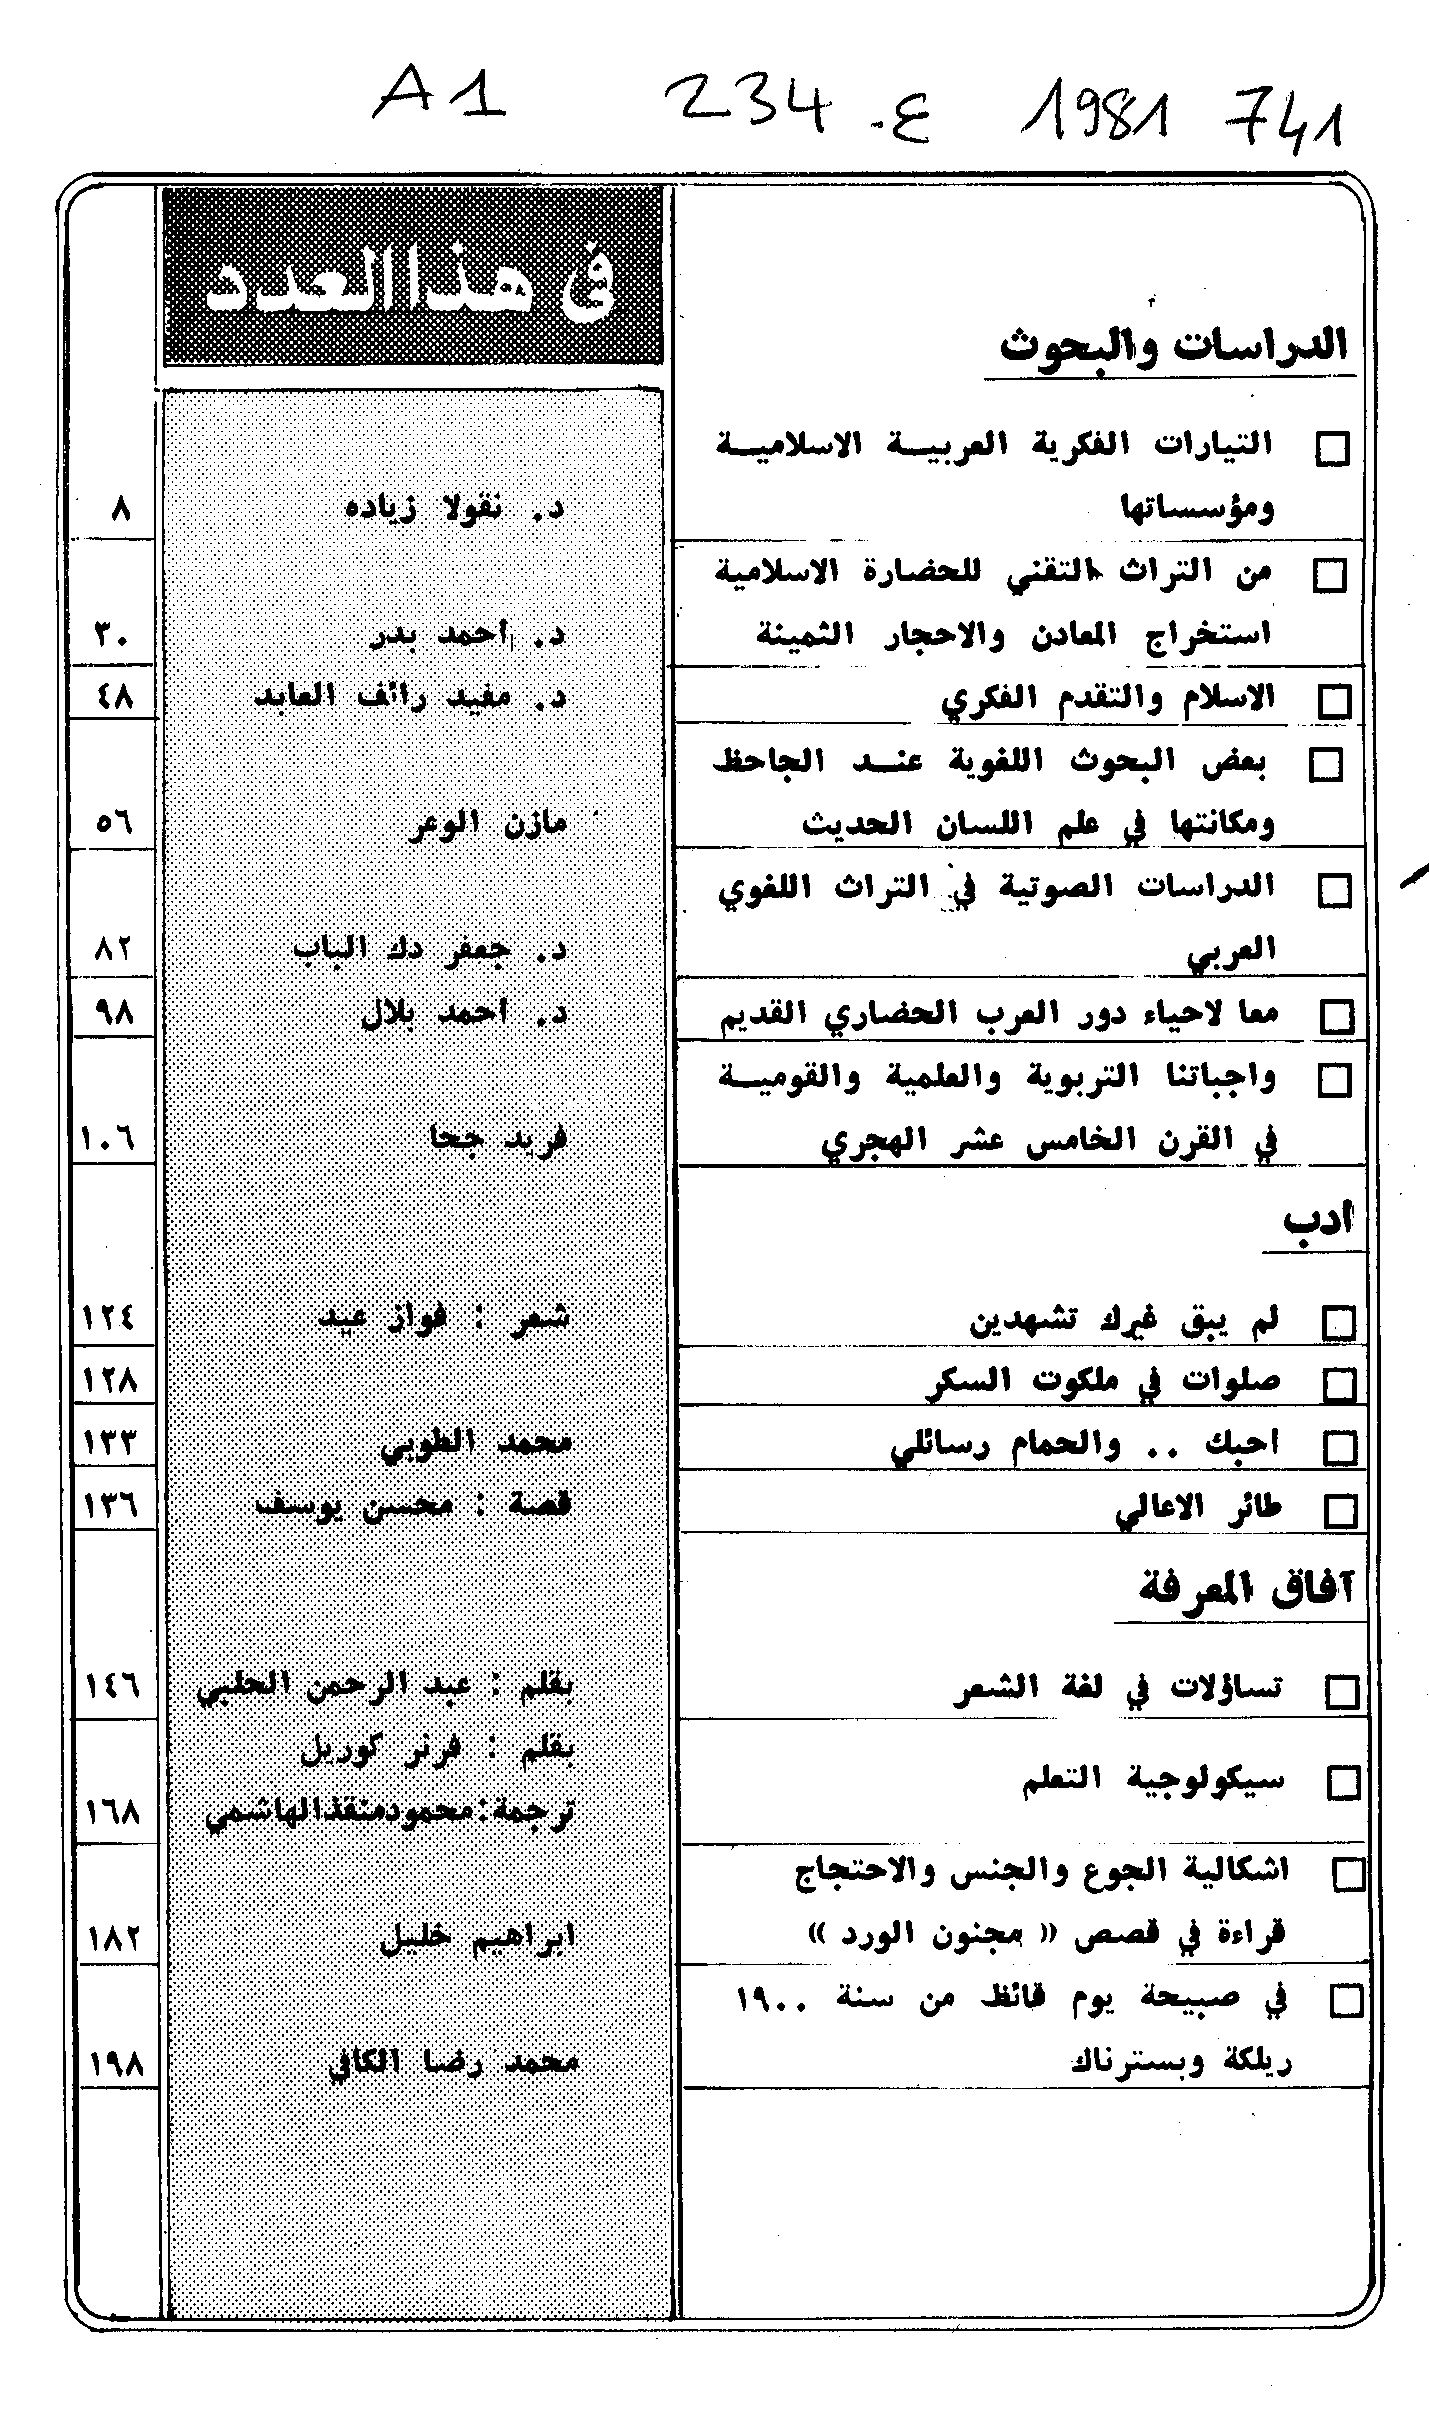 A1 234 ع. 1981 741
في هذا العدد
الدراسات والبحوث
التيارات الفكرية العربيــة الاسلاميــة
ومؤسساتها د. نقولا زياده ٨
من التراث التقني للحضارة الاسلامية
استخراج المعادن والاحجار الثمينة د. احمد بدر ٣٠
الاسلام والتقدم الفكري د. مفيد رائف العابد ٤٨
بعض البحوث اللغوية عنــد الجاحظ
ومكانتها في علم اللسان الحديث مازن الوعر ٥٦
الدراسات الصوتية في التراث اللغوي
العربي د. جعفر دك الباب ٨٢
معا لاحياء دور العرب الحضاري القديم د. احمد بلال ٩٨
واجباتنا التربوية والعلمية والقوميــة
في القرن الخامس عشر الهجري فريد جحا ١٠٦
ادب
لم يبق غيرك تشهدين شعر : فواز عيد ١٢٤
صلوات في ملكوت السكر ١٢٨
احبك .. والحمام رسائلي محمد الطوبي ١٣٣
طائر الاعالي قصة : محسن يوسف ١٣٦
آفاق المعرفة
تساؤلات في لغة الشعر بقلم : عبد الرحمن الحلبي ١٤٦
بقلم : فرنر كوريل
سيكولوجية التعلم
ترجمة : محمود منقذ الهاشمي ١٦٨
اشكالية الجوع والجنس والاحتجاج
قراءة في قصص « مجنون الورد » ابراهيم خليل ١٨٢
في صبيحة يوم قائظ من سنة ١٩٠٠
ريلكة وبسترناك محمد رضا الكافي ١٩٨